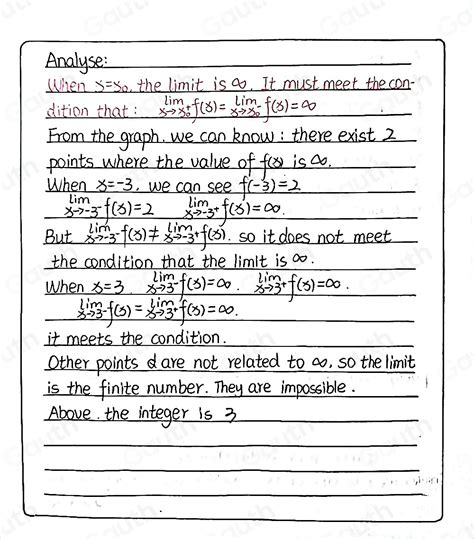 Analyse:
When x=x₀, the limit is ∞. It must meet the con-
dition that: lim x→x₀⁺ f(x) = lim x→x₀⁻ f(x) = ∞
From the graph. we can know: there exist 2
points where the value of f(x) is ∞.
When x=-3, we can see f(-3)=2
lim x→-3⁻ f(x)=2 lim x→-3⁺ f(x)=∞.
But lim x→-3⁻ f(x) ≠ lim x→-3⁺ f(x). so it does not meet
the condition that the limit is ∞.
When x=3. lim x→3⁻ f(x)=∞. lim x→3⁺ f(x)=∞.
lim x→3⁻ f(x) = lim x→3⁺ f(x)=∞.
it meets the condition.
Other points are not related to ∞, so the limit
is the finite number. They are impossible.
Above. the integer is 3